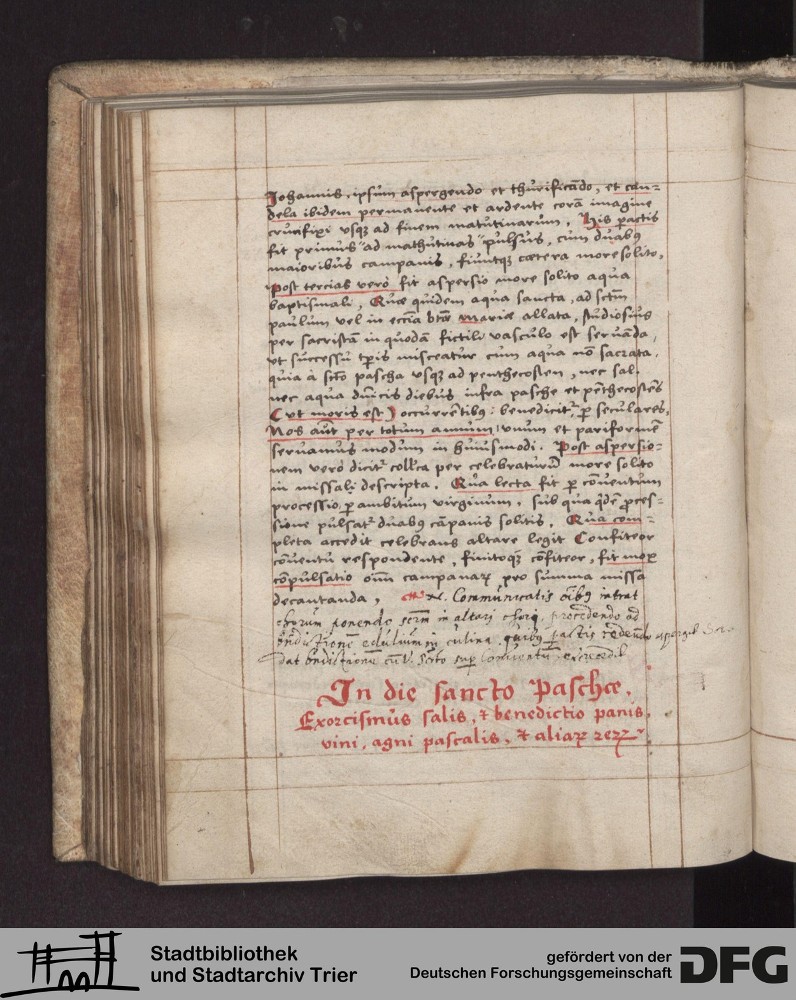 Johannis, ipsum aspergendo et thurificādo, et can-
dela ibidem permanente et ardente corā imagine
crucifixi vsqꝫ ad finem matutinarum, His ꝑactis
fit primus ad mathutinas pulsus, cum duabꝰ
maioribus campanis, fiuntqꝫ cætera more solito,
Post tercias verò fit aspersio more solito aqua
baptismali, Quæ quidem aqua sancta, ad sctm̄
paulum vel in ecc̄ia btæ Mariæ allata, studiosius
per sacristā in quodā fictili vasculo est seruāda,
vt successu tp̄is misceatur cum aqua nō sacrata,
quia à scto pascha vsqꝫ ad penthecosten, nec sal
nec aqua dn̄icis diebus infra pasche et pēthecostēs
(vt moris est) occurrētibꝰ: benedicitr ꝑ seculares,
Nos aūt per totum annum, vnum et pariformē
seruamus modum in huiusmodi. Post aspersio-
nem verò dicitr collc̄a per celebraturū more solito
in missali descripta. Qua lecta fit ꝑ cōuentum
processio ꝑ ambitum virginum, sub qua qdē proces-
sione pulsatr duabꝰ cāpanis solitis, Qua com-
pleta accedit celebrans altare legit Confiteor
cōuentu respondente, finitoqꝫ cōfiteor, fit mox
cōpulsatio om̄ campanaꝝ pro summa missa
decantanda, Communicatis oībꝰ intrat
chorum ponendo in altari chori, procedendo ad
bn̄dictionē eduliūm in culina, quibꝰ ꝑactis redeundo
dat bn̄dictionem
In die sancto Paschæ.
Exorcismus salis, & benedictio panis,
vini, agni pascalis, & aliaꝝ reꝝ
Stadtbibliothek
und Stadtarchiv Trier
gefördert von der
Deutschen Forschungsgemeinschaft
DFG